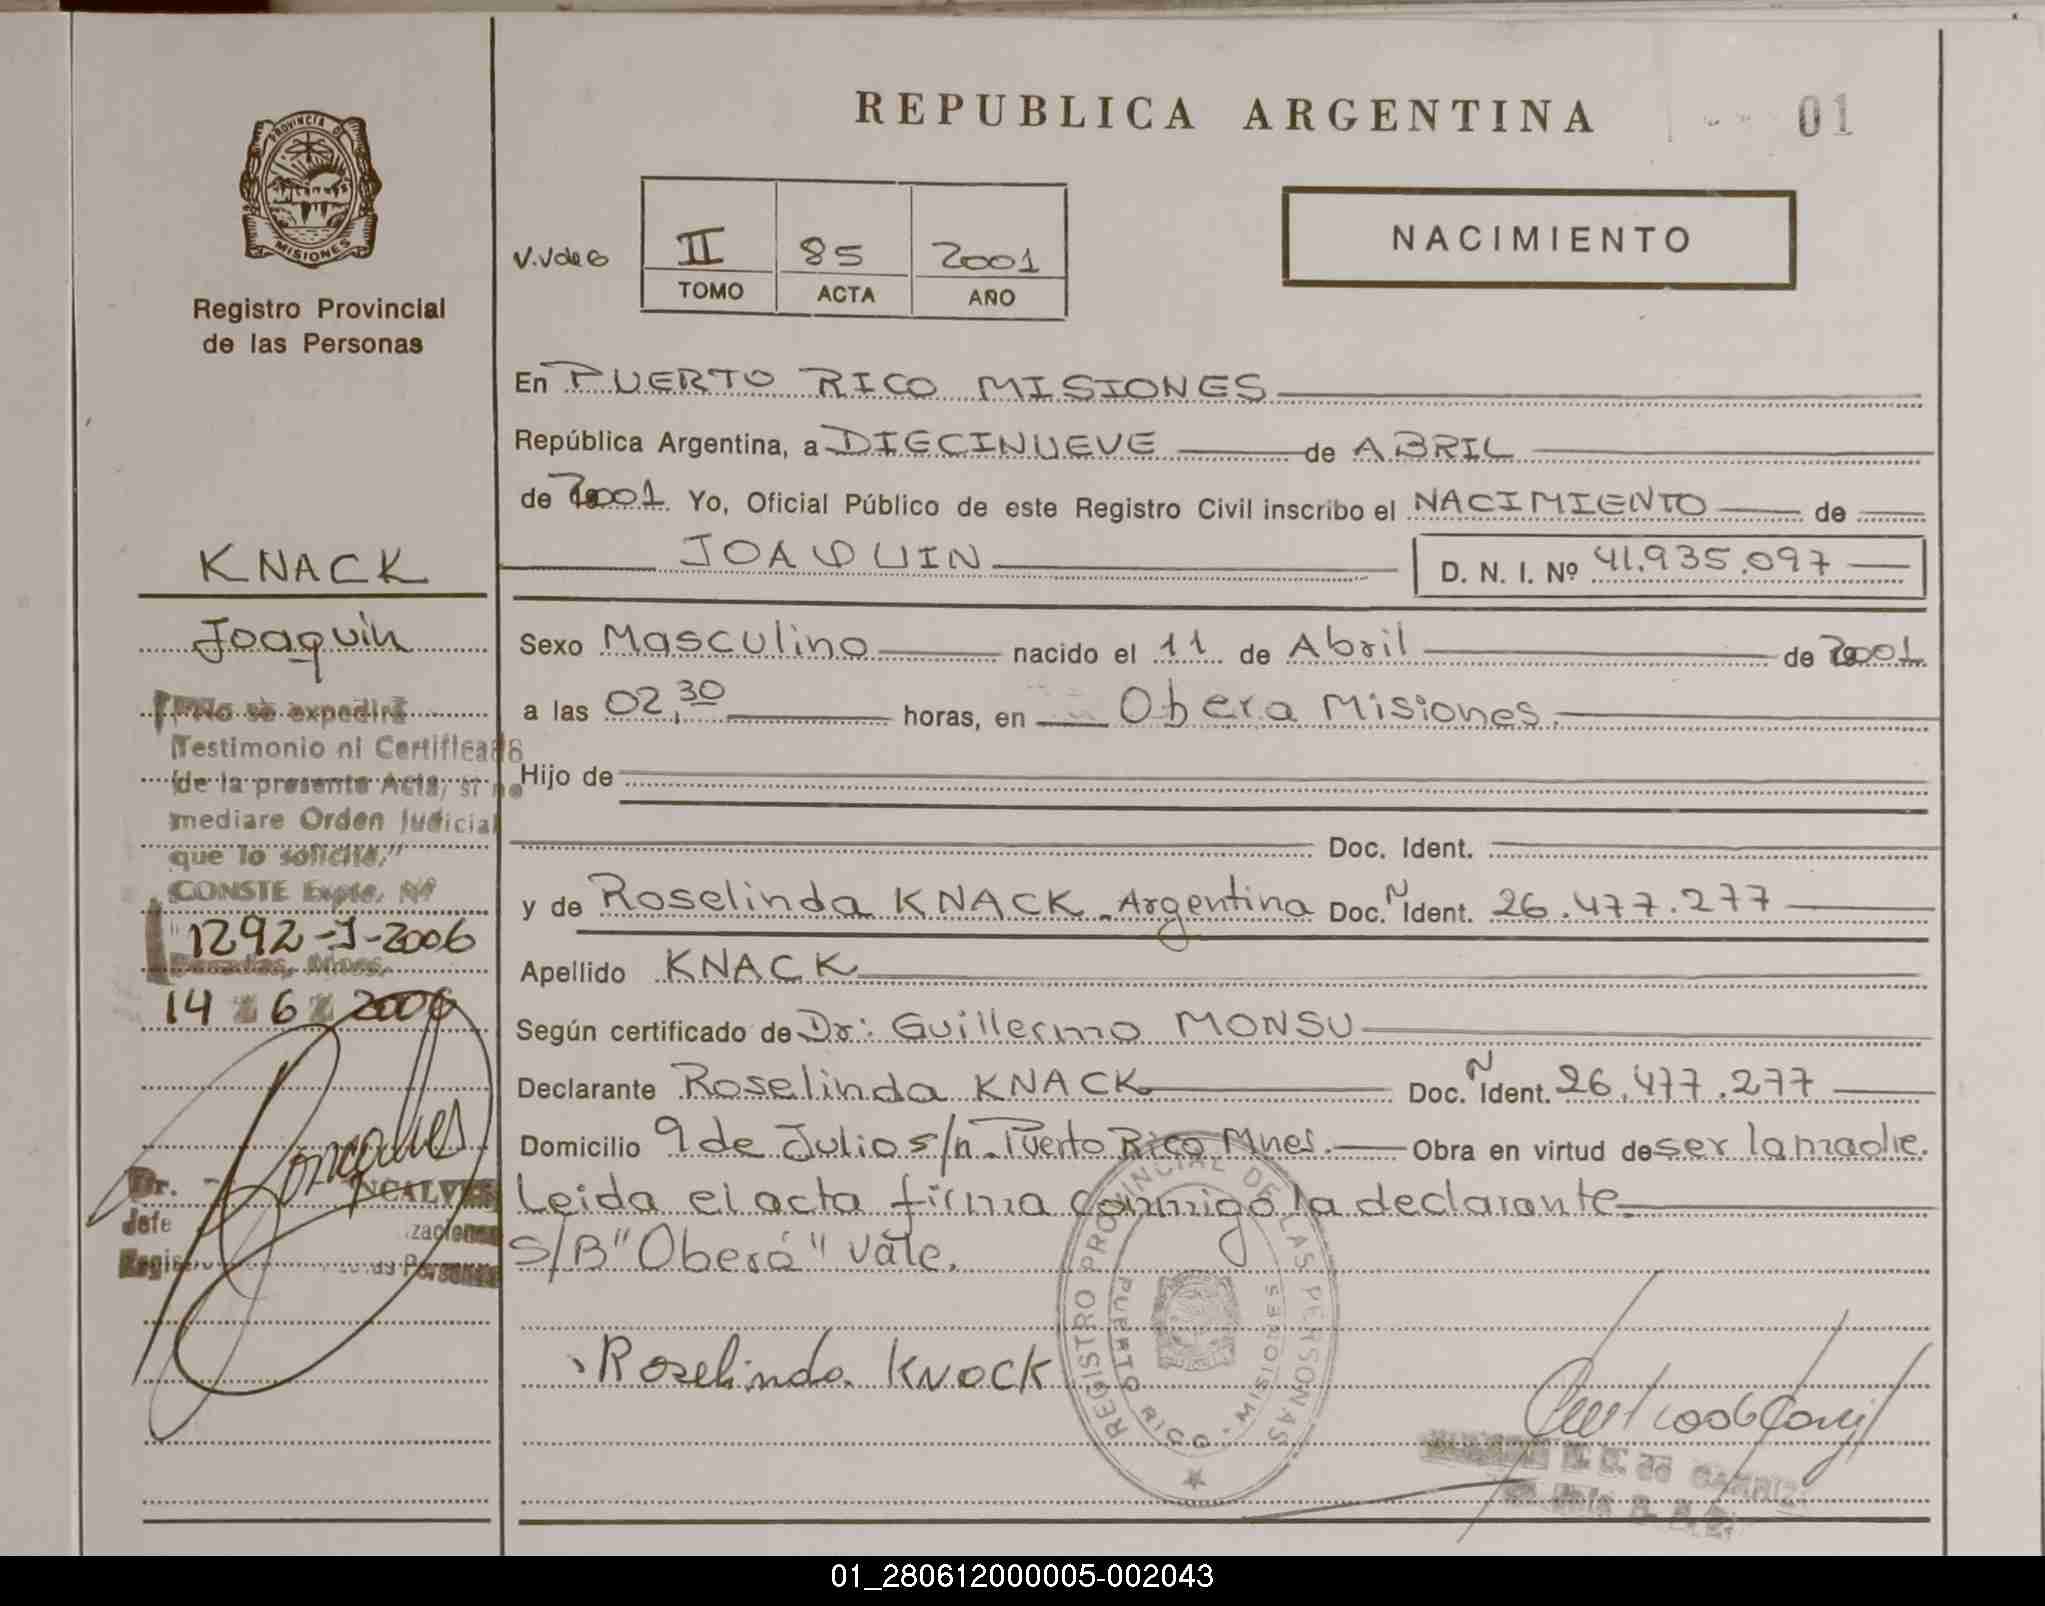 REPUBLICA ARGENTINA
01
PROVINCIA DE
MISIONES
Registro Provincial
de las Personas
V.V de G
II 85 2001
TOMO ACTA AÑO
NACIMIENTO
En PUERTO RICO MISIONES
República Argentina, a DIECINUEVE de ABRIL
de 2001 Yo, Oficial Público de este Registro Civil inscribo el NACIMIENTO de
JOAQUIN D. N. I. Nº 41.935.097
Sexo Masculino nacido el 11 de Abril de 2001
a las 02,30 horas, en Obera Misiones.
Hijo de
Doc. Ident.
y de Roselinda KNACK. Argentina Doc. N Ident. 26.477.277
Apellido KNACK
Según certificado de Dr: Guillermo MONSU
Declarante Roselinda KNACK Doc. N Ident. 26.477.277
Domicilio 9 de Julio s/n. Puerto Rico Mnes. Obra en virtud de ser la madre.
Leida el acta firma conmigo la declarante.
S/B "Oberá" vale.
Roselinda KNACK
REGISTRO PROVINCIAL DE LAS PERSONAS
PUERTO RICO - MISIONES
KNACK
Joaquin
"No se expedirá
Testimonio ni Certificado
de la presente Acta, si no
mediare Orden Judicial
que lo solicite."
CONSTE Expte. Nº
1292-J-2006
Posadas, Mnes.
14 6 2006
Dr.
Jefe
01_280612000005-002043